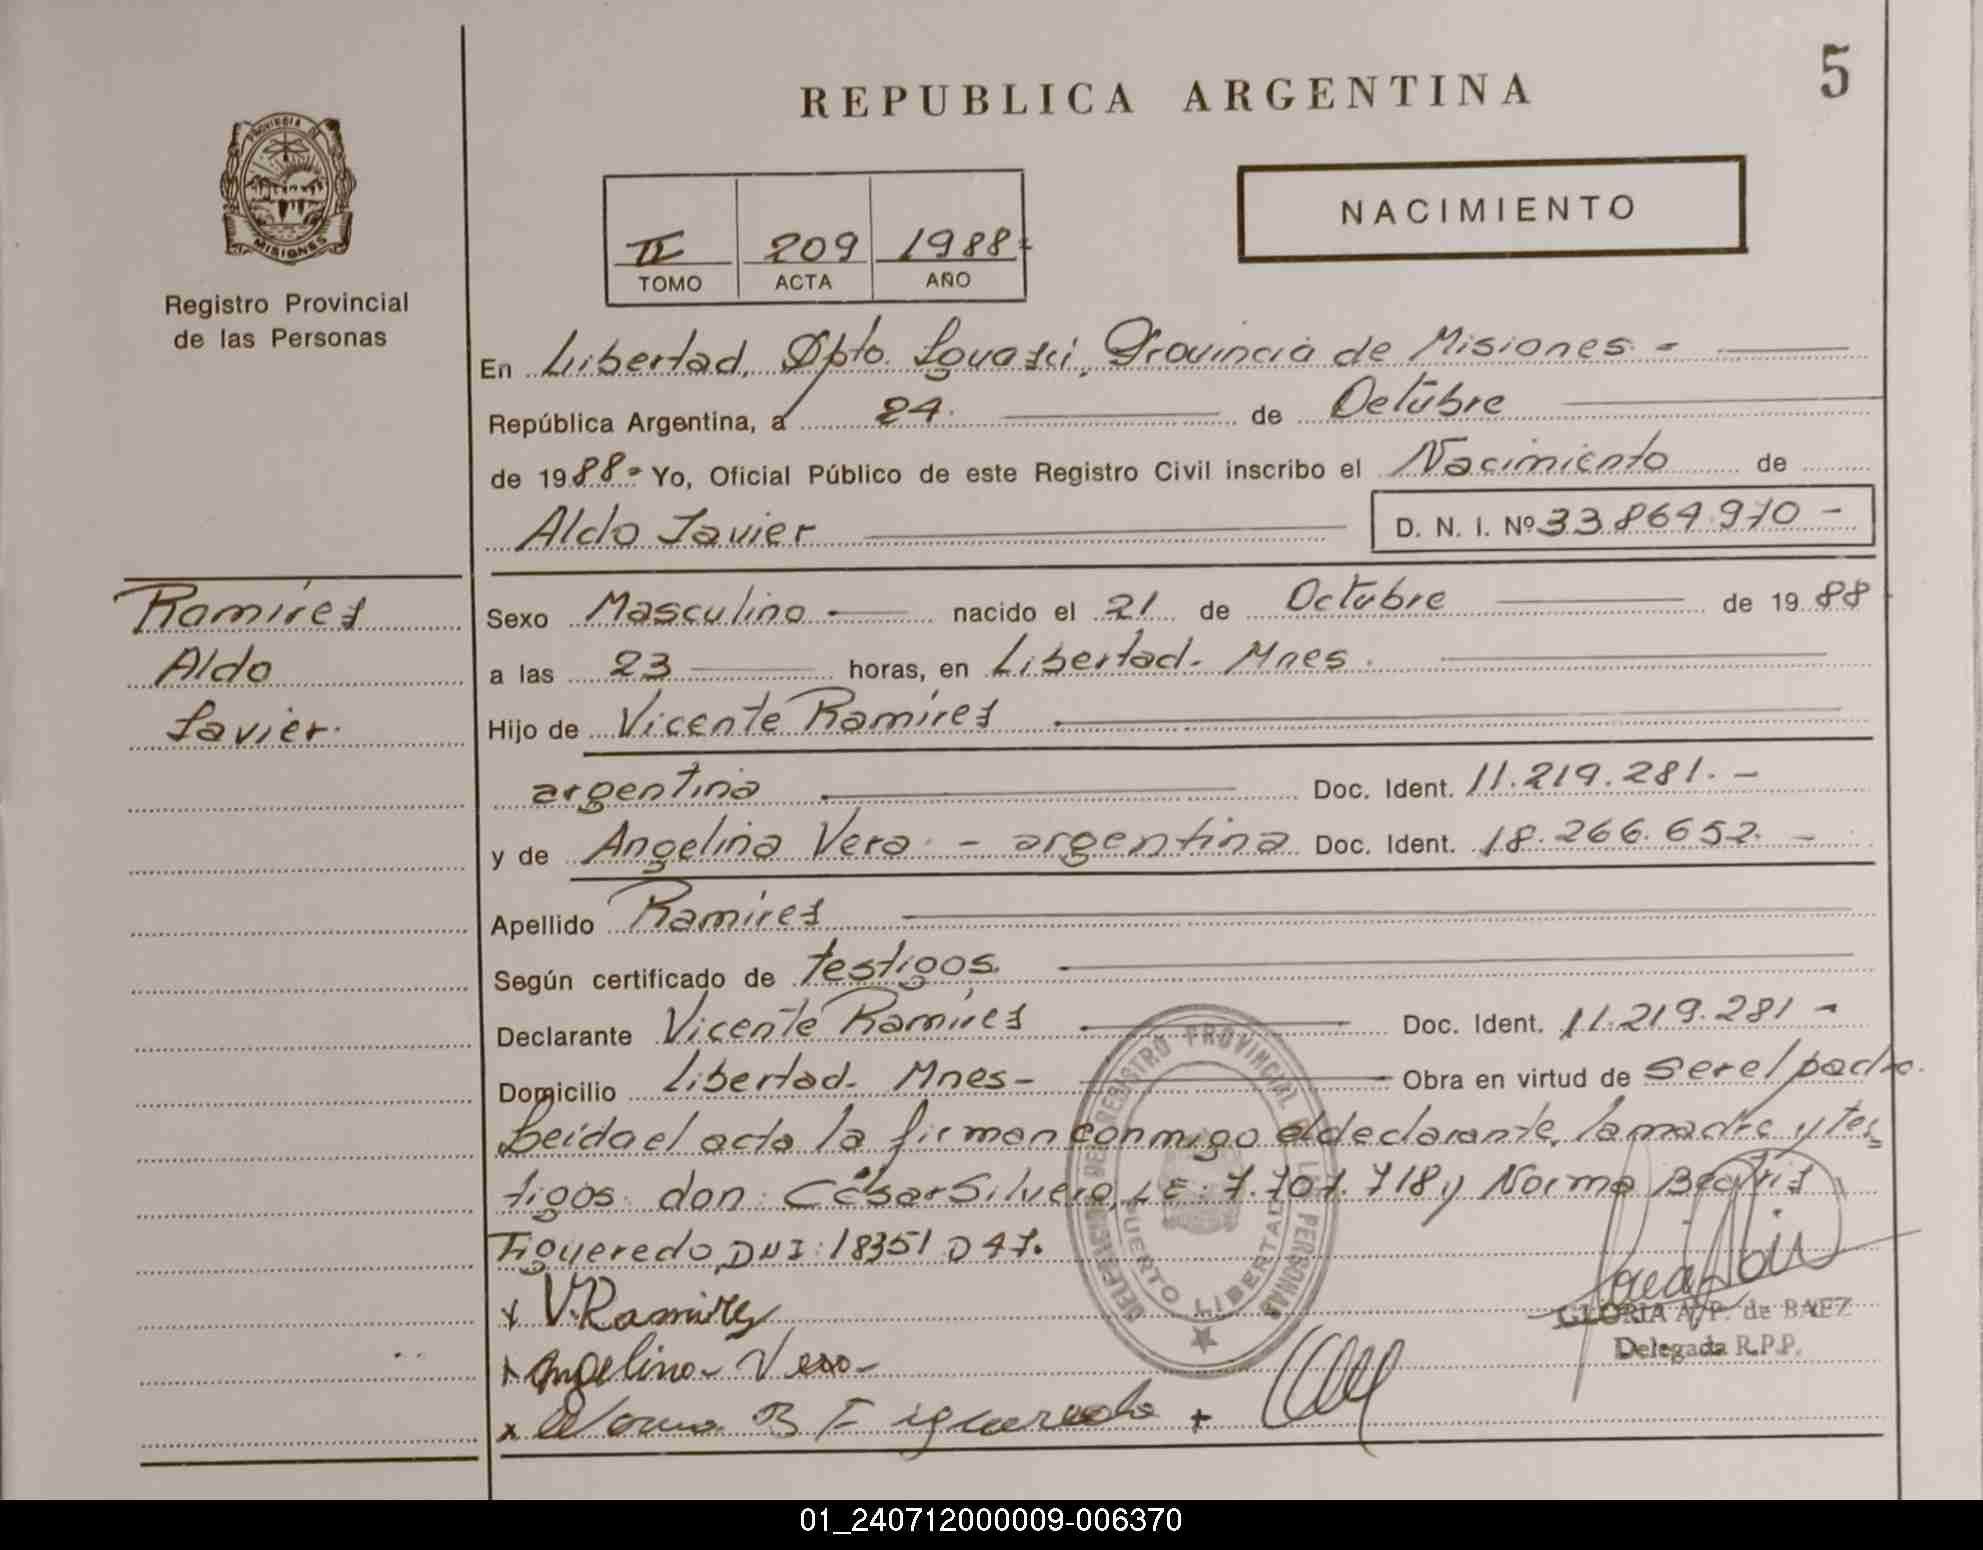 REPUBLICA ARGENTINA
5
PROVINCIA DE
MISIONES
Registro Provincial
de las Personas
II 209 1988
TOMO ACTA AÑO
NACIMIENTO
En Libertad, Dpto. Iguazú, Provincia de Misiones -
República Argentina, a 24. de Octubre
de 1988- Yo, Oficial Público de este Registro Civil inscribo el Nacimiento de
Aldo Javier D. N. I. Nº 33.864.970 -
Ramírez
Aldo
Javier.
Sexo Masculino nacido el 21 de Octubre de 1988
a las 23 horas, en Libertad - Mnes.
Hijo de Vicente Ramírez
argentina Doc. Ident. 11.219.281. -
y de Angelina Vera - argentina Doc. Ident. 18.266.652. -
Apellido Ramírez
Según certificado de testigos.
Declarante Vicente Ramírez Doc. Ident. 11.219.281 -
Domicilio Libertad - Mnes - Obra en virtud de ser el padre.
Leida el acta la firman conmigo el declarante, la madre y tes
tigos: don: César Silvero, L E: 7.707.718 y Norma Beatriz
Figueredo, DNI: 18351 047.
x V. Ramirez
x Angelina - Vera -
x Norma B Figueredo +
DELEGACION DEL REGISTRO PROVINCIAL DE LAS PERSONAS
PUERTO LIBERTAD
GLORIA A. P. de BAEZ
Delegada R.P.P.
01_240712000009-006370